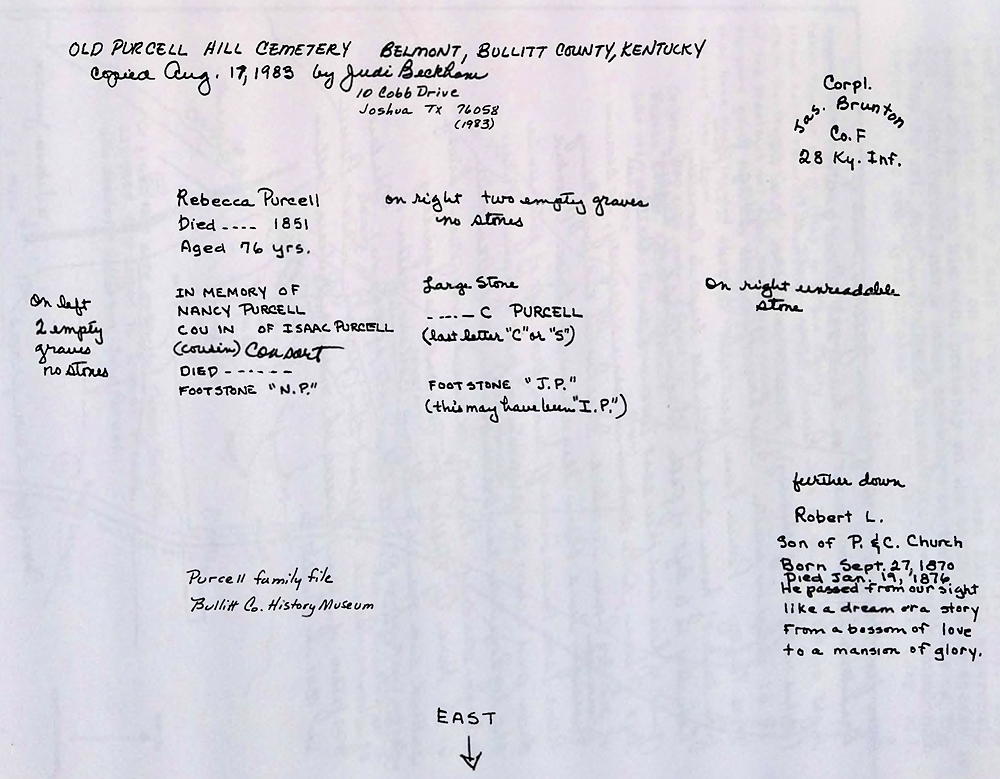 OLD PURCELL HILL CEMETERY BELMONT, BULLITT COUNTY, KENTUCKY
Copied Aug. 17, 1983 by Judi Beckham
10 Cobb Drive
Joshua Tx 76058
(1983)
Corpl.
Jas. Brunton
Co. F
28 Ky. Inf.
Rebecca Purcell
Died ---- 1851
Aged 76 yrs.
on right two empty graves
no stones
On left
2 empty
graves
no stones
IN MEMORY OF
NANCY PURCELL
COU IN OF ISAAC PURCELL
(cousin) Consort
DIED ------
FOOTSTONE "N.P."
Large Stone
----- C PURCELL
(last letter "C" or "S")
FOOTSTONE "J.P."
(this may have been "I.P.")
On right unreadable
stone
further down
Robert L.
Son of P. & C. Church
Born Sept. 27, 1870
Died Jan. 19, 1876
He passed from our sight
like a dream or a story
From a bossom of love
to a mansion of glory.
Purcell family file
Bullitt Co. History Museum
EAST